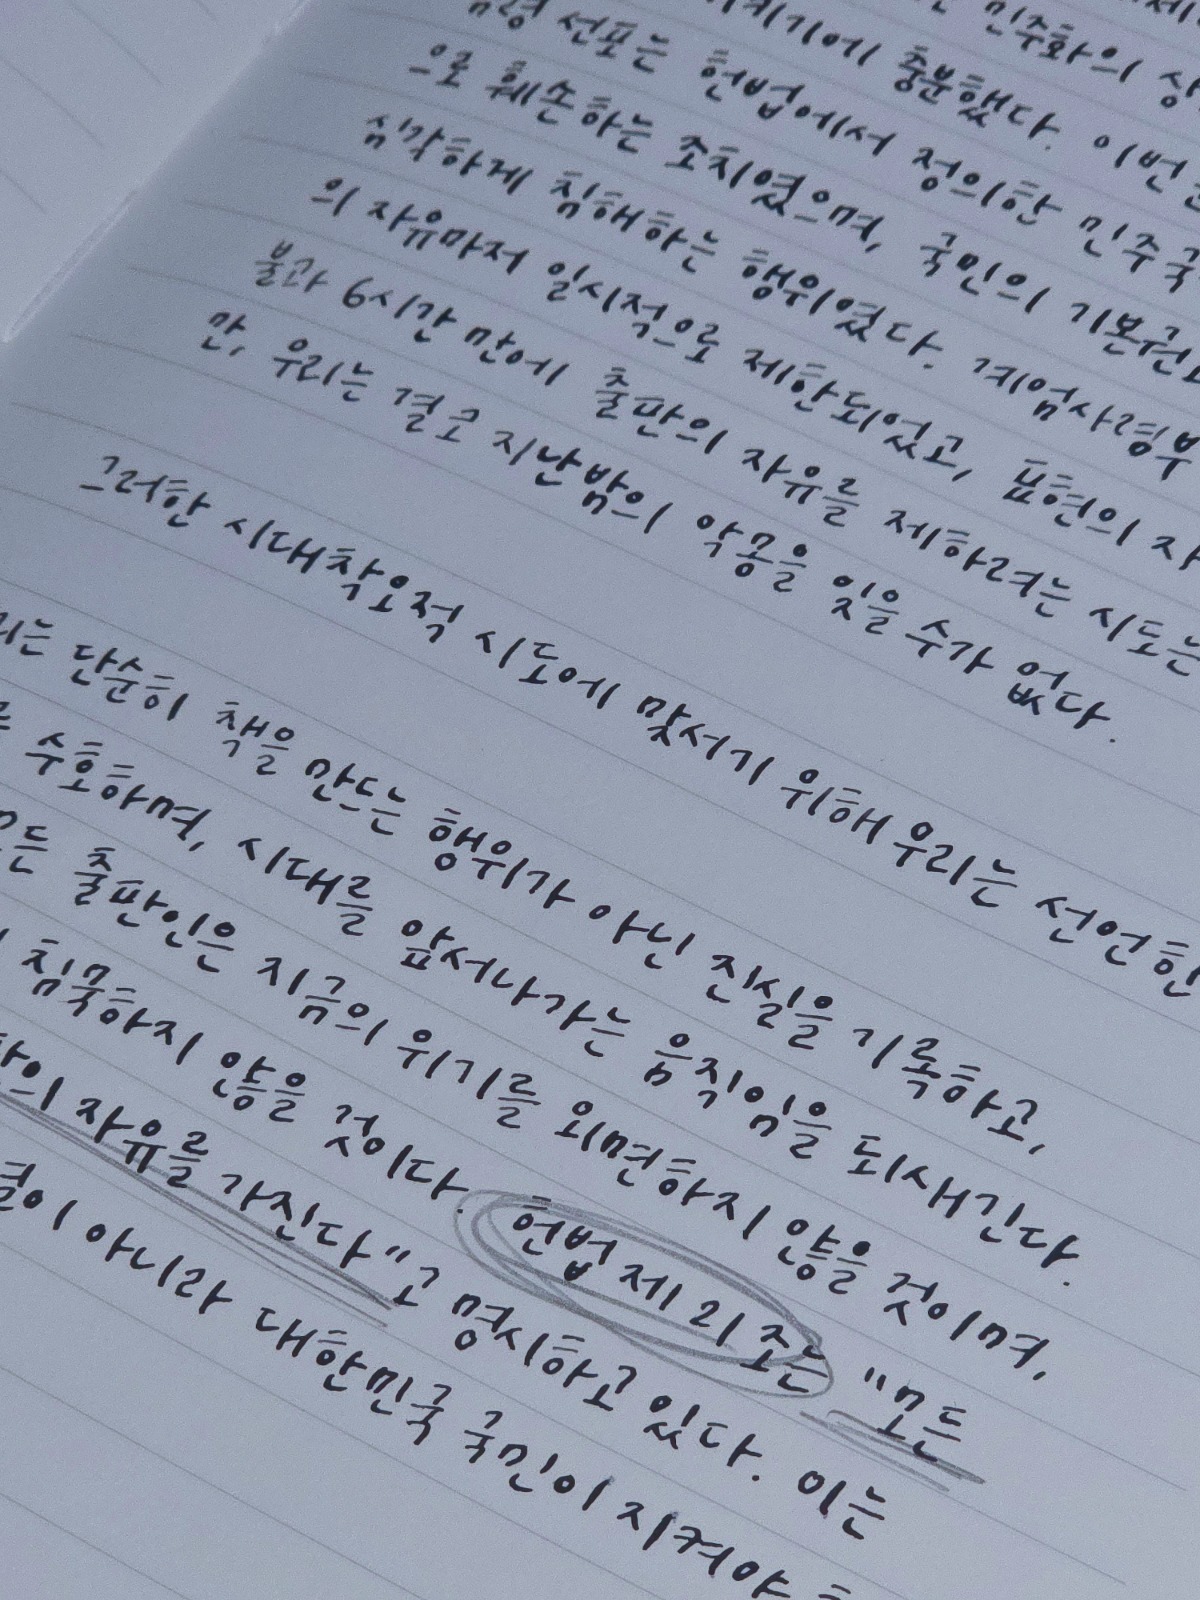 민주화의 상
계기에 충분했다. 이번
선포는 헌법에서 정의한 민주
으로 훼손하는 조치였으며, 국민의 기본권
심각하게 침해하는 행위였다. 계엄사령부
의 자유마저 일시적으로 제한되었고, 표현의
불과 6시간 만에 출판의 자유를 제하려는 시도는
만, 우리는 결코 지난밤의 악몽을 잊을 수가 없다.
그러한 시대착오적 시도에 맞서기 위해 우리는 선언한
단순히 책을 만드는 행위가 아닌 진실을 기록하고,
수호하며, 시대를 앞서나가는 움직임을 되새긴다.
출판인은 지금의 위기를 외면하지 않을 것이며,
침묵하지 않을 것이다. 헌법 제21조는 "모든
자유를 가진다"고 명시하고 있다. 이는
아니라 대한민국 국민이 지켜야